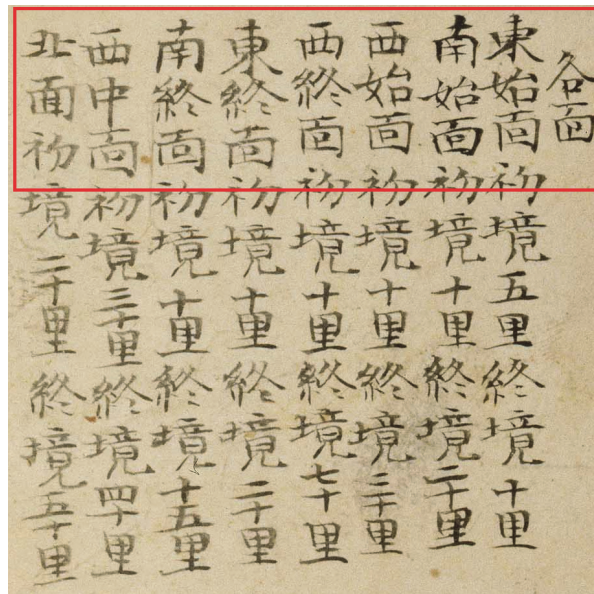 各面
東始面初境五里終境十里
南始面初境十里終境二十里
西始面初境十里終境三十里
西終面初境十里終境七十里
東終面初境十里終境二十里
南終面初境十里終境十五里
西中面初境三十里終境四十里
北面初境二十里終境五十里